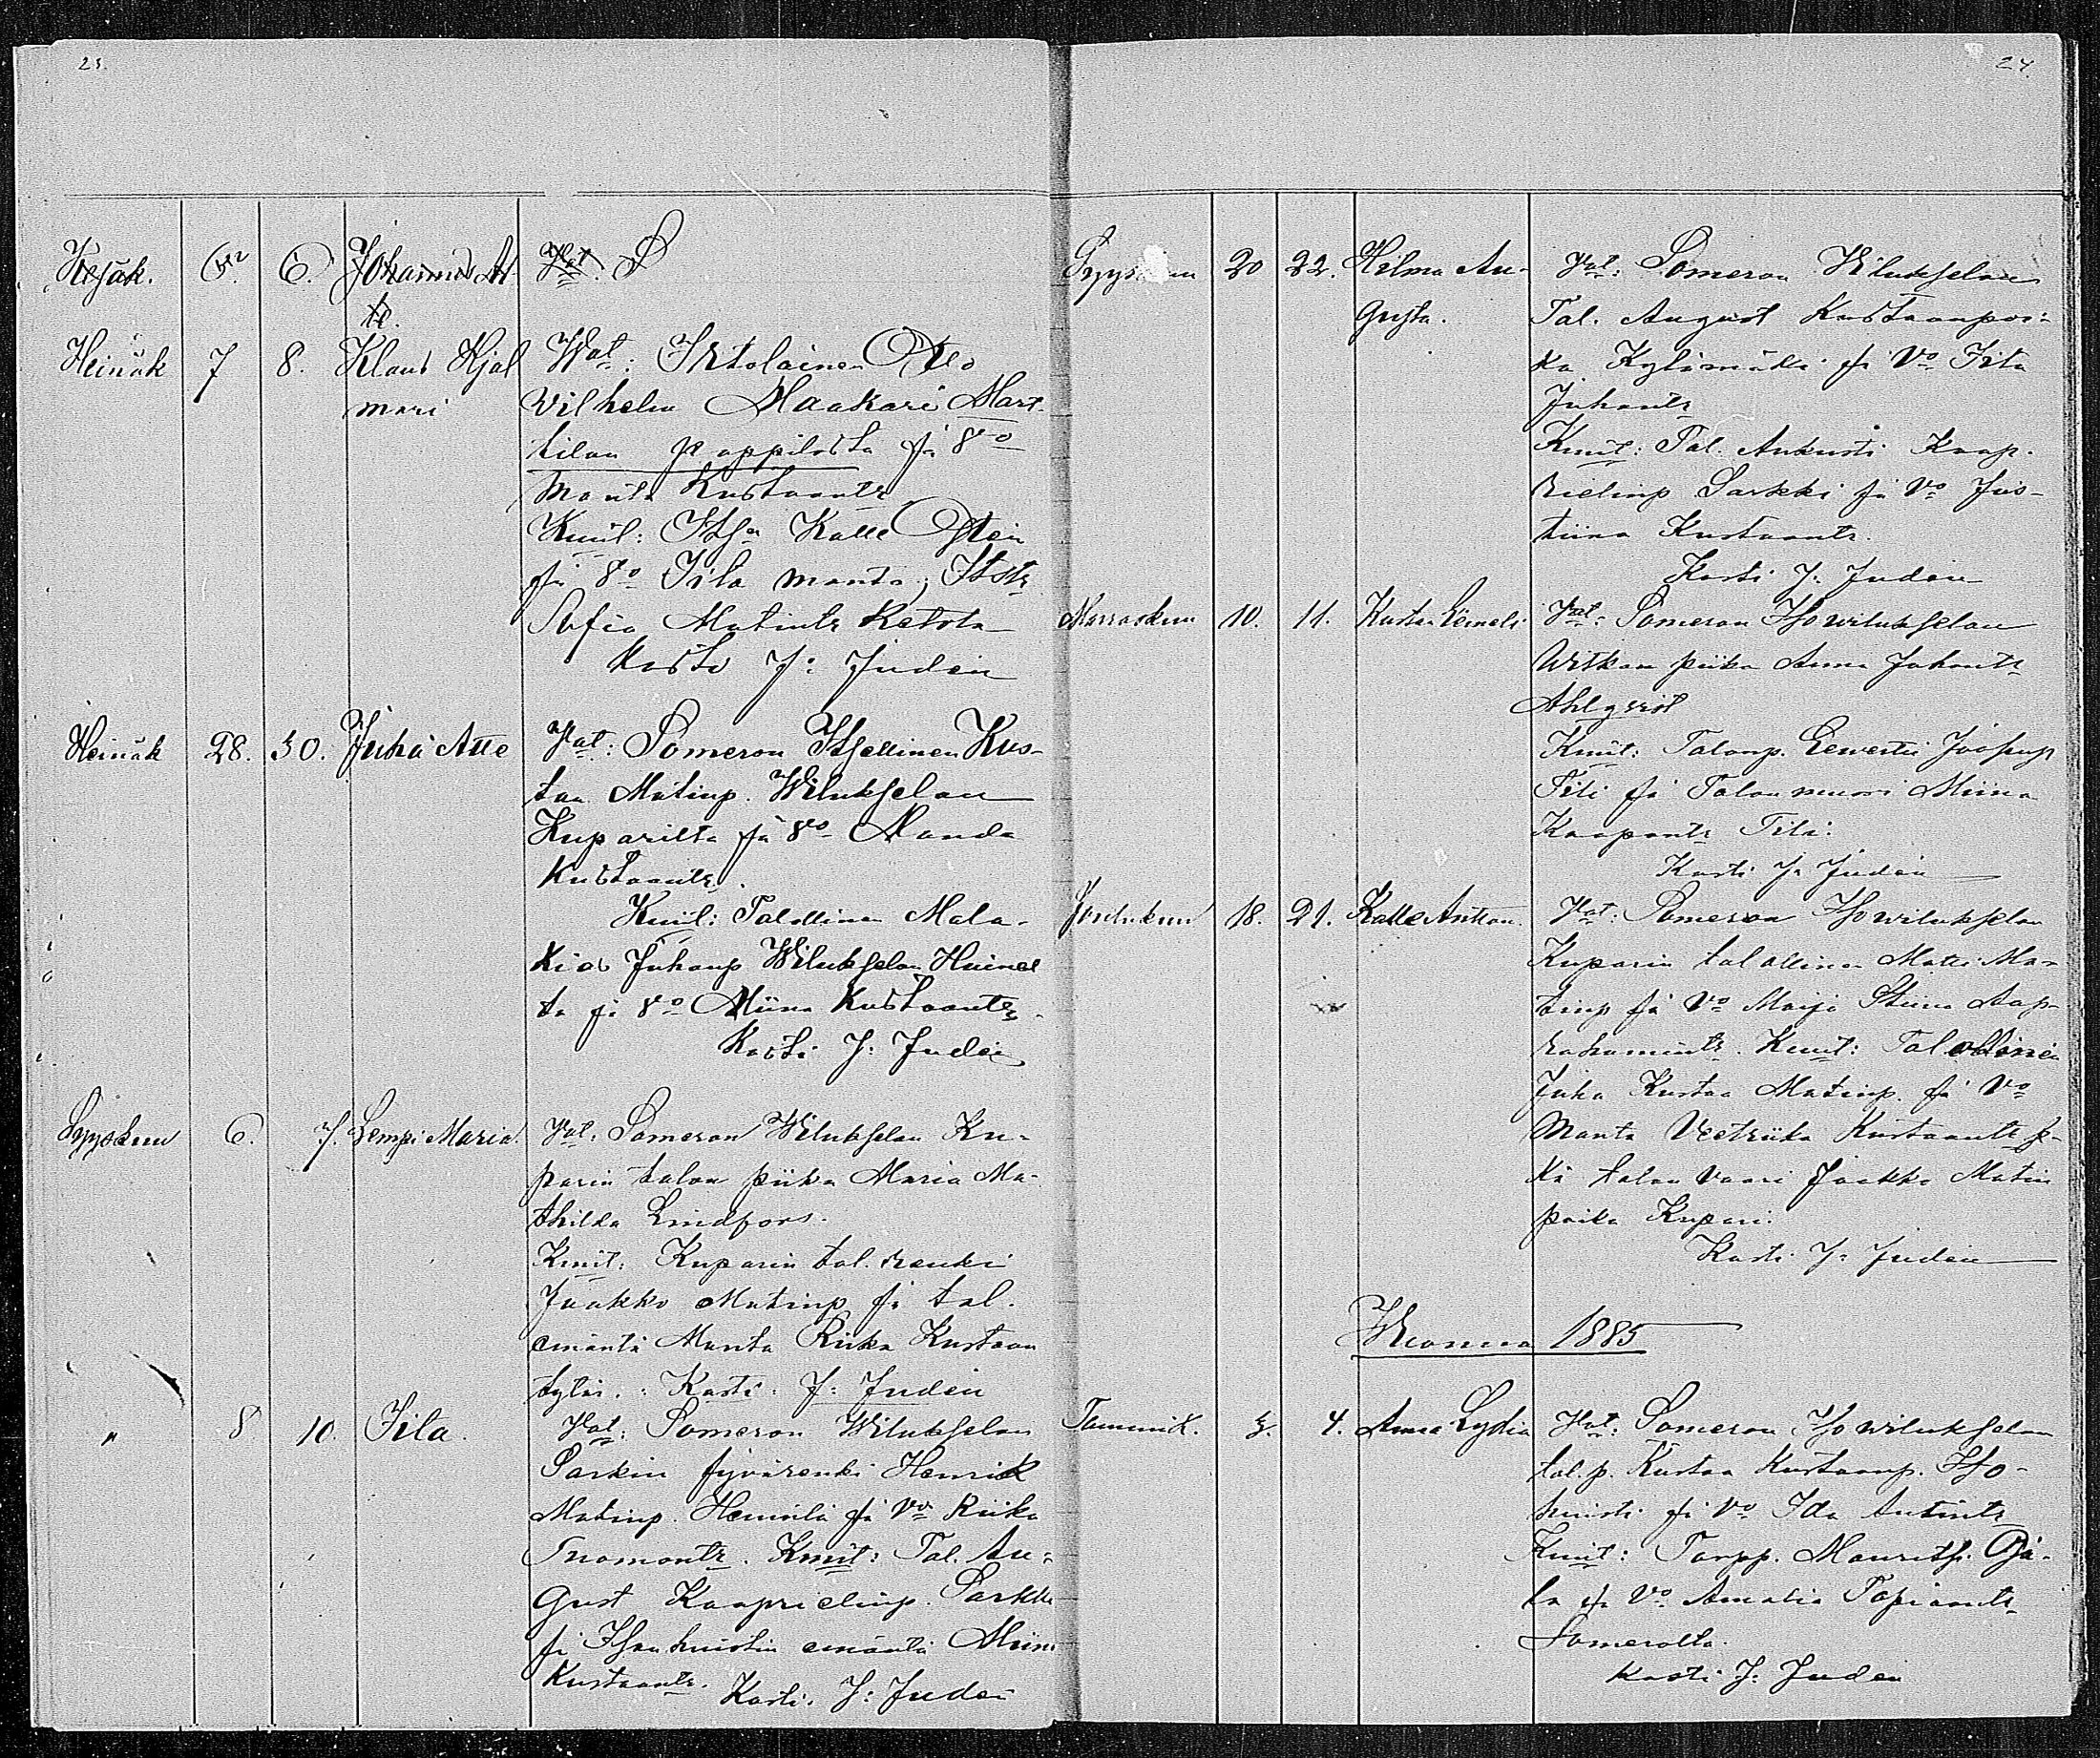 23.
Kesäk. 6. Johannes At-
to.
Heinäk 7 8. Klaus Hjal
mari
Wat: Itsolainen Otto
Wilhelm Maakari Mart-
tilan pappilosta ja Vo
Manta Kustaantr
Kmit: Itsn Kalle Sten
ja Vo Iita Manta, Itstr
Sofia Matintr Ketola
Kasti J: Juden
Heinäk 28. 30. Juha Atte
Vat: Someron Itsellinen Kus-
taa Matinp. Wiluksel​an
Kuparilta ja Vo Manda
Kustaantr.
Kmit: Talollinen Mala-
kias Juhanp Wilukselan
ta ja Vo Miina Kustaantr
Kasti J: Juden
Syyskuu 6. 7. Lempi Maria.
Vat: Someron Wilukselan Ku-
parin talon piika Maria Ma-
thilda Lindfors.
Kmit: Kuparin tal. renki
Jaakko Matinp ja tal.
emäntä Manta Riika Kustaan
tytär. Kasti. J: Juden
" 8 10. Iita.
Vat: Someron Wilukselan
Sarkin jyvärenki Henrik
Matinp. Heinilä ja Vo Riika
Tuomontr. Kmit: Tal. Au-
gust Kaaprielinp. Sarkki
ja Isonhuistin emäntä Miina
Kustaantr. Kasti. J: Juden
24.
Syyskuu 20 22. Hilma Au-
gusta.
Vat: Someron Wilukselan
Tal. August Kustaanpoi-
ka Kylämäki ja Vo Iita
Juhantr
Kmit: Tal. Aukusti Kaap-
rielinp Sarkki ja Vo Jus-
tiina Kustaantr.
Kasti J: Juden
Marraskuu 10. 11. Kustaa Eemeli
Vat: Someron Isowilukselan
Witkan piika Anna Juhantr
Ahlqvist
Kmit: Talonp. Eewertti Jooseppi
Tili ja Talon muori Miina
Kaapontr Tili:
Kasti J: Juden
Joulukuu 18. 21. Kalle Antton.
Vat: Someron Isowilukselan
Kuparin talollinen Matti Ma-
tinp ja Vo Maija Stiina Aap-
rahamintr. Kmit: Talollinen
Juha Kustaa Matinp. ja Vo
Manta Vretriika Kustaantr se-
kä talon vaari Jaakko Matin
poika Kupari.
Kasti J: Juden
Wuonna 1885
Tammik. 3. 4. Anna Lydia
Vat: Someron Isowilukselan
tal.p. Kustaa Kustaanp. Iso-
huisti ja Vo Ida Antintr
Kmit: Torpp. Maurits Oja-
la ja Vo Amalia Topiantr
Somerolta.
Kasti J: Juden